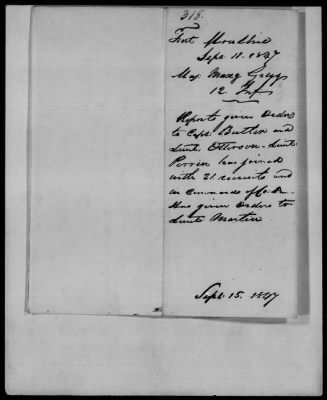 318.
Fort Moultrie
Sept. 11. 1847
Maj. Maxy Gregg
12 Inf
Reports given Orders
to Capt. Butler and
Lieut. Otterson - Lieut.
Perrin has joined
with 21 recruits and
in Command of Co. D -
Has given Orders to
Lieut Martin
Sept. 15. 1847